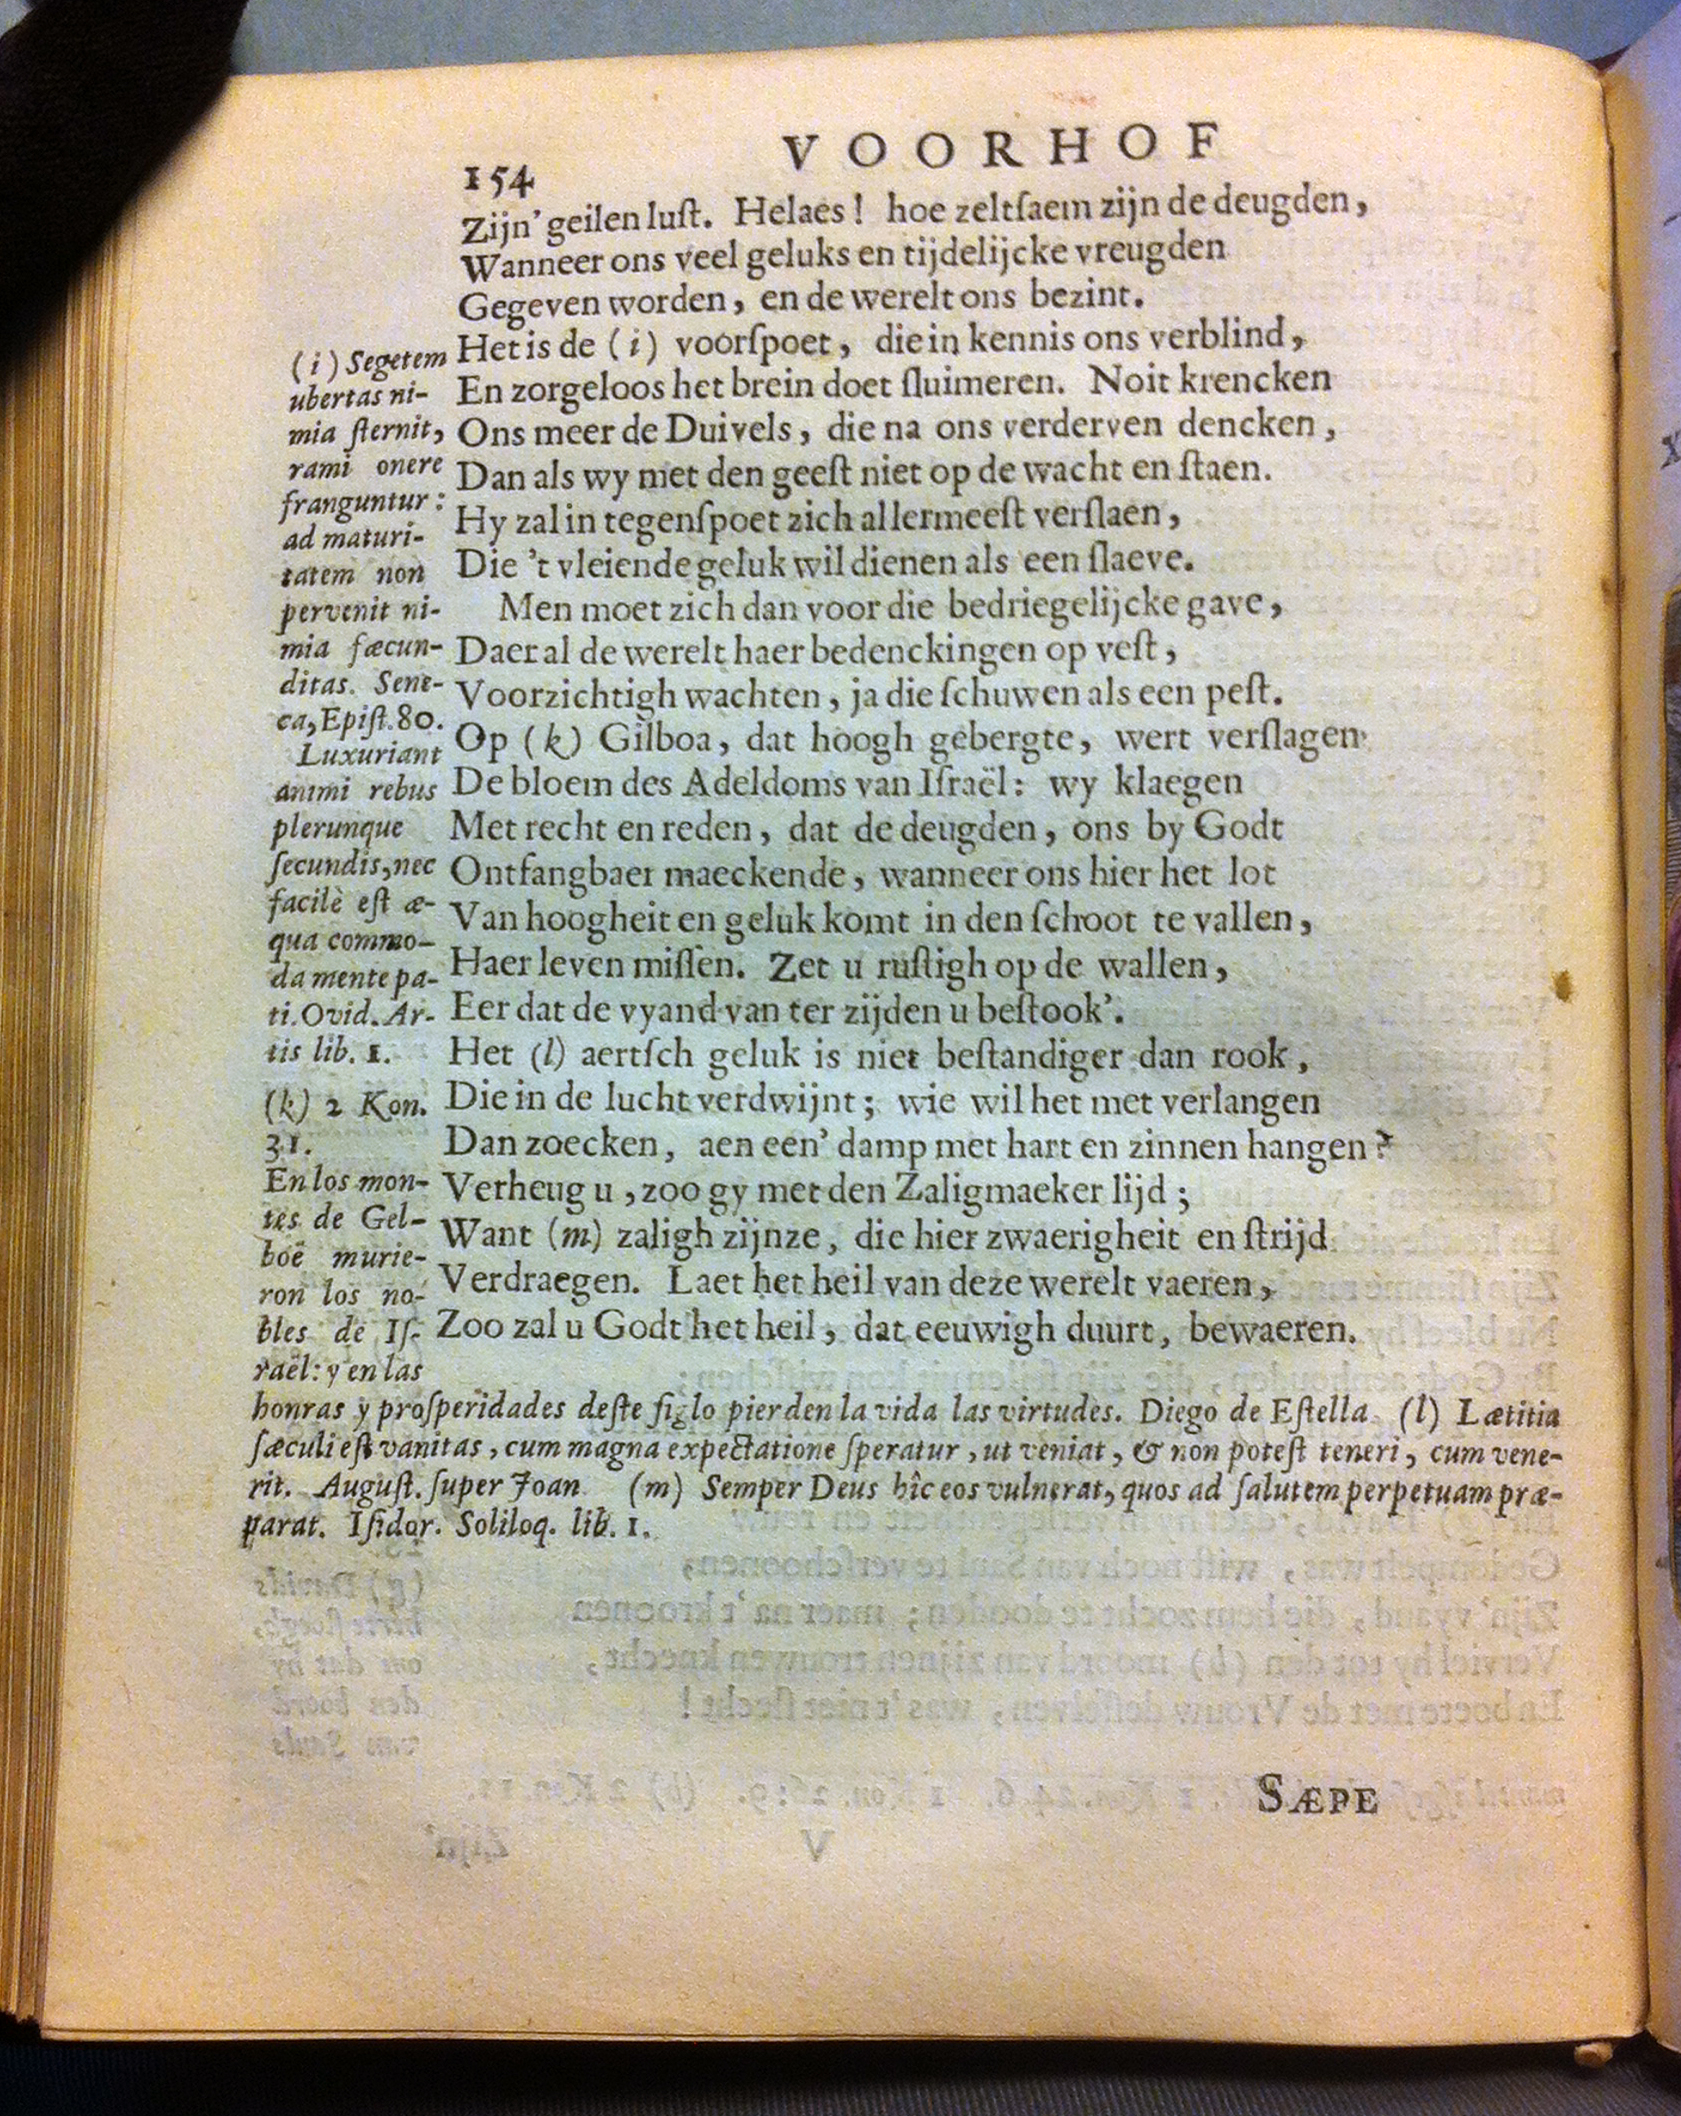 VOORHOF
154
Zijn' geilen luſt. Helaes! hoe zeltſaem zijn de deugden,
Wanneer ons veel geluks en tijdelijcke vreugden
Gegeven worden, en de werelt ons bezint.
Het is de (i) voorſpoet, die in kennis ons verblind,
En zorgeloos het brein doet ſluimeren. Noit krencken
Ons meer de Duivels, die na ons verderven dencken,
Dan als wy met den geeſt niet op de wacht en ſtaen.
Hy zal in tegenſpoet zich allermeeſt verſlaen,
Die 't vleiende geluk wil dienen als een ſlaeve.
Men moet zich dan voor die bedriegelijcke gave,
Daer al de werelt haer bedenckingen op veſt,
Voorzichtigh wachten, ja die ſchuwen als een peſt.
Op (k) Gilboa, dat hoogh gebergte, wert verſlagen
De bloem des Adeldoms van Iſraël: wy klaegen
Met recht en reden, dat de deugden, ons by Godt
Ontfangbaer maeckende, wanneer ons hier het lot
Van hoogheit en geluk komt in den ſchoot te vallen,
Haer leven miſſen. Zet u ruſtigh op de wallen,
Eer dat de vyand van ter zijden u beſtook'.
Het (l) aertſch geluk is niet beſtandiger dan rook,
Die in de lucht verdwijnt; wie wil het met verlangen
Dan zoecken, aen een' damp met hart en zinnen hangen?
Verheug u, zoo gy met den Zaligmaeker lijd;
Want (m) zaligh zijnze, die hier zwaerigheit en ſtrijd
Verdraegen. Laet het heil van deze werelt vaeren,
Zoo zal u Godt het heil, dat eeuwigh duurt, bewaeren.
(i) Segetem
ubertas ni-
mia ſternit,
rami onere
franguntur:
ad maturi-
tatem non
pervenit ni-
mia fæcun-
ditas. Sene-
ca, Epiſt. 80.
Luxuriant
animi rebus
plerunque
ſecundis, nec
facilè eſt æ-
qua commo-
da mente pa-
ti. Ovid. Ar-
tis lib. 1.
(k) 2 Kon.
31.
En los mon-
tes de Gel-
boë murie-
ron los no-
bles de Iſ-
raël: y en las
honras y proſperidades deſte ſiglo pierden la vida las virtudes. Diego de Eſtella. (l) Lætitia
ſæculi eſt vanitas, cum magna expectatione ſperatur, ut veniat, & non poteſt teneri, cum vene-
rit. Auguſt. ſuper Joan. (m) Semper Deus hîc eos vulnerat, quos ad ſalutem perpetuam præ-
parat. Iſidor. Soliloq. lib. 1.
SÆPE